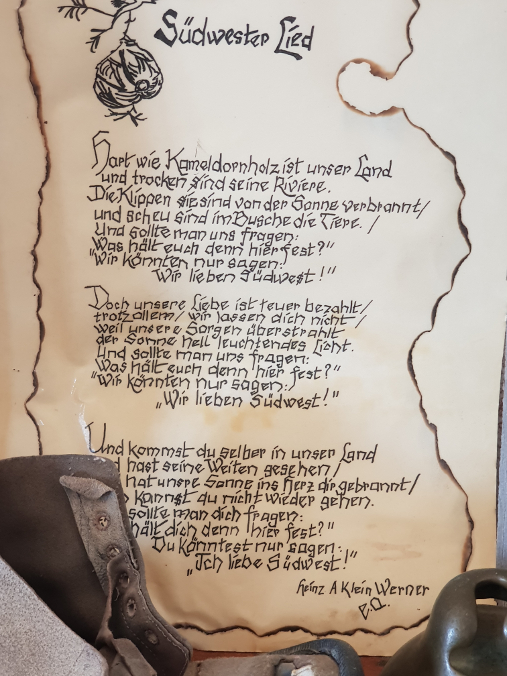 Südwester Lied
Hart wie Kameldornholz ist unser Land
und trocken sind seine Riviere.
Die Klippen sie sind von der Sonne verbrannt/
und scheu sind im Busche die Tiere./
Und sollte man uns fragen:
"Was hält euch denn hier fest?"
"Wir könnten nur sagen:
Wir lieben Südwest!"
Doch unsere Liebe ist teuer bezahlt/
trotz allem/ wir lassen dich nicht/
weil unsere Sorgen überstrahlt
der Sonne hell leuchtendes Licht.
Und sollte man uns fragen:
"Was hält euch denn hier fest?"
"Wir könnten nur sagen:
„Wir lieben Südwest!"
Und kommst du selber in unser Land
hast seine Weiten gesehen/
hat unsre Sonne ins Herz dir gebrannt/
kannst du nicht wieder gehen.
sollte man dich fragen:
hält dich denn hier fest?"
Du könntest nur sagen:
„Ich liebe Südwest!"
Heinz A Klein Werner